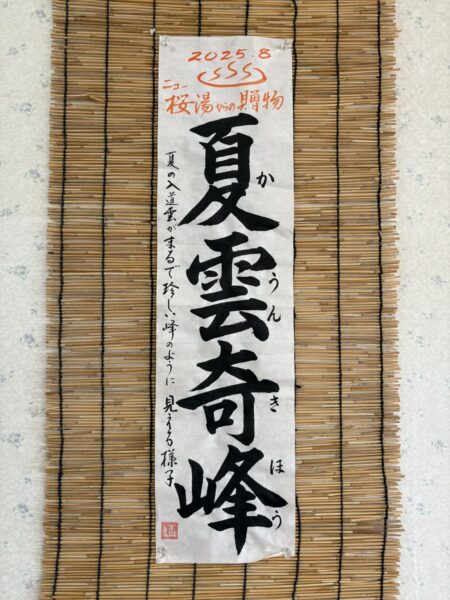 2025.8
ニュー
桜湯からの贈物
夏雲奇峰
か
うん
き
ほう
夏の入道雲がまるで珍しい峰のように見える様子